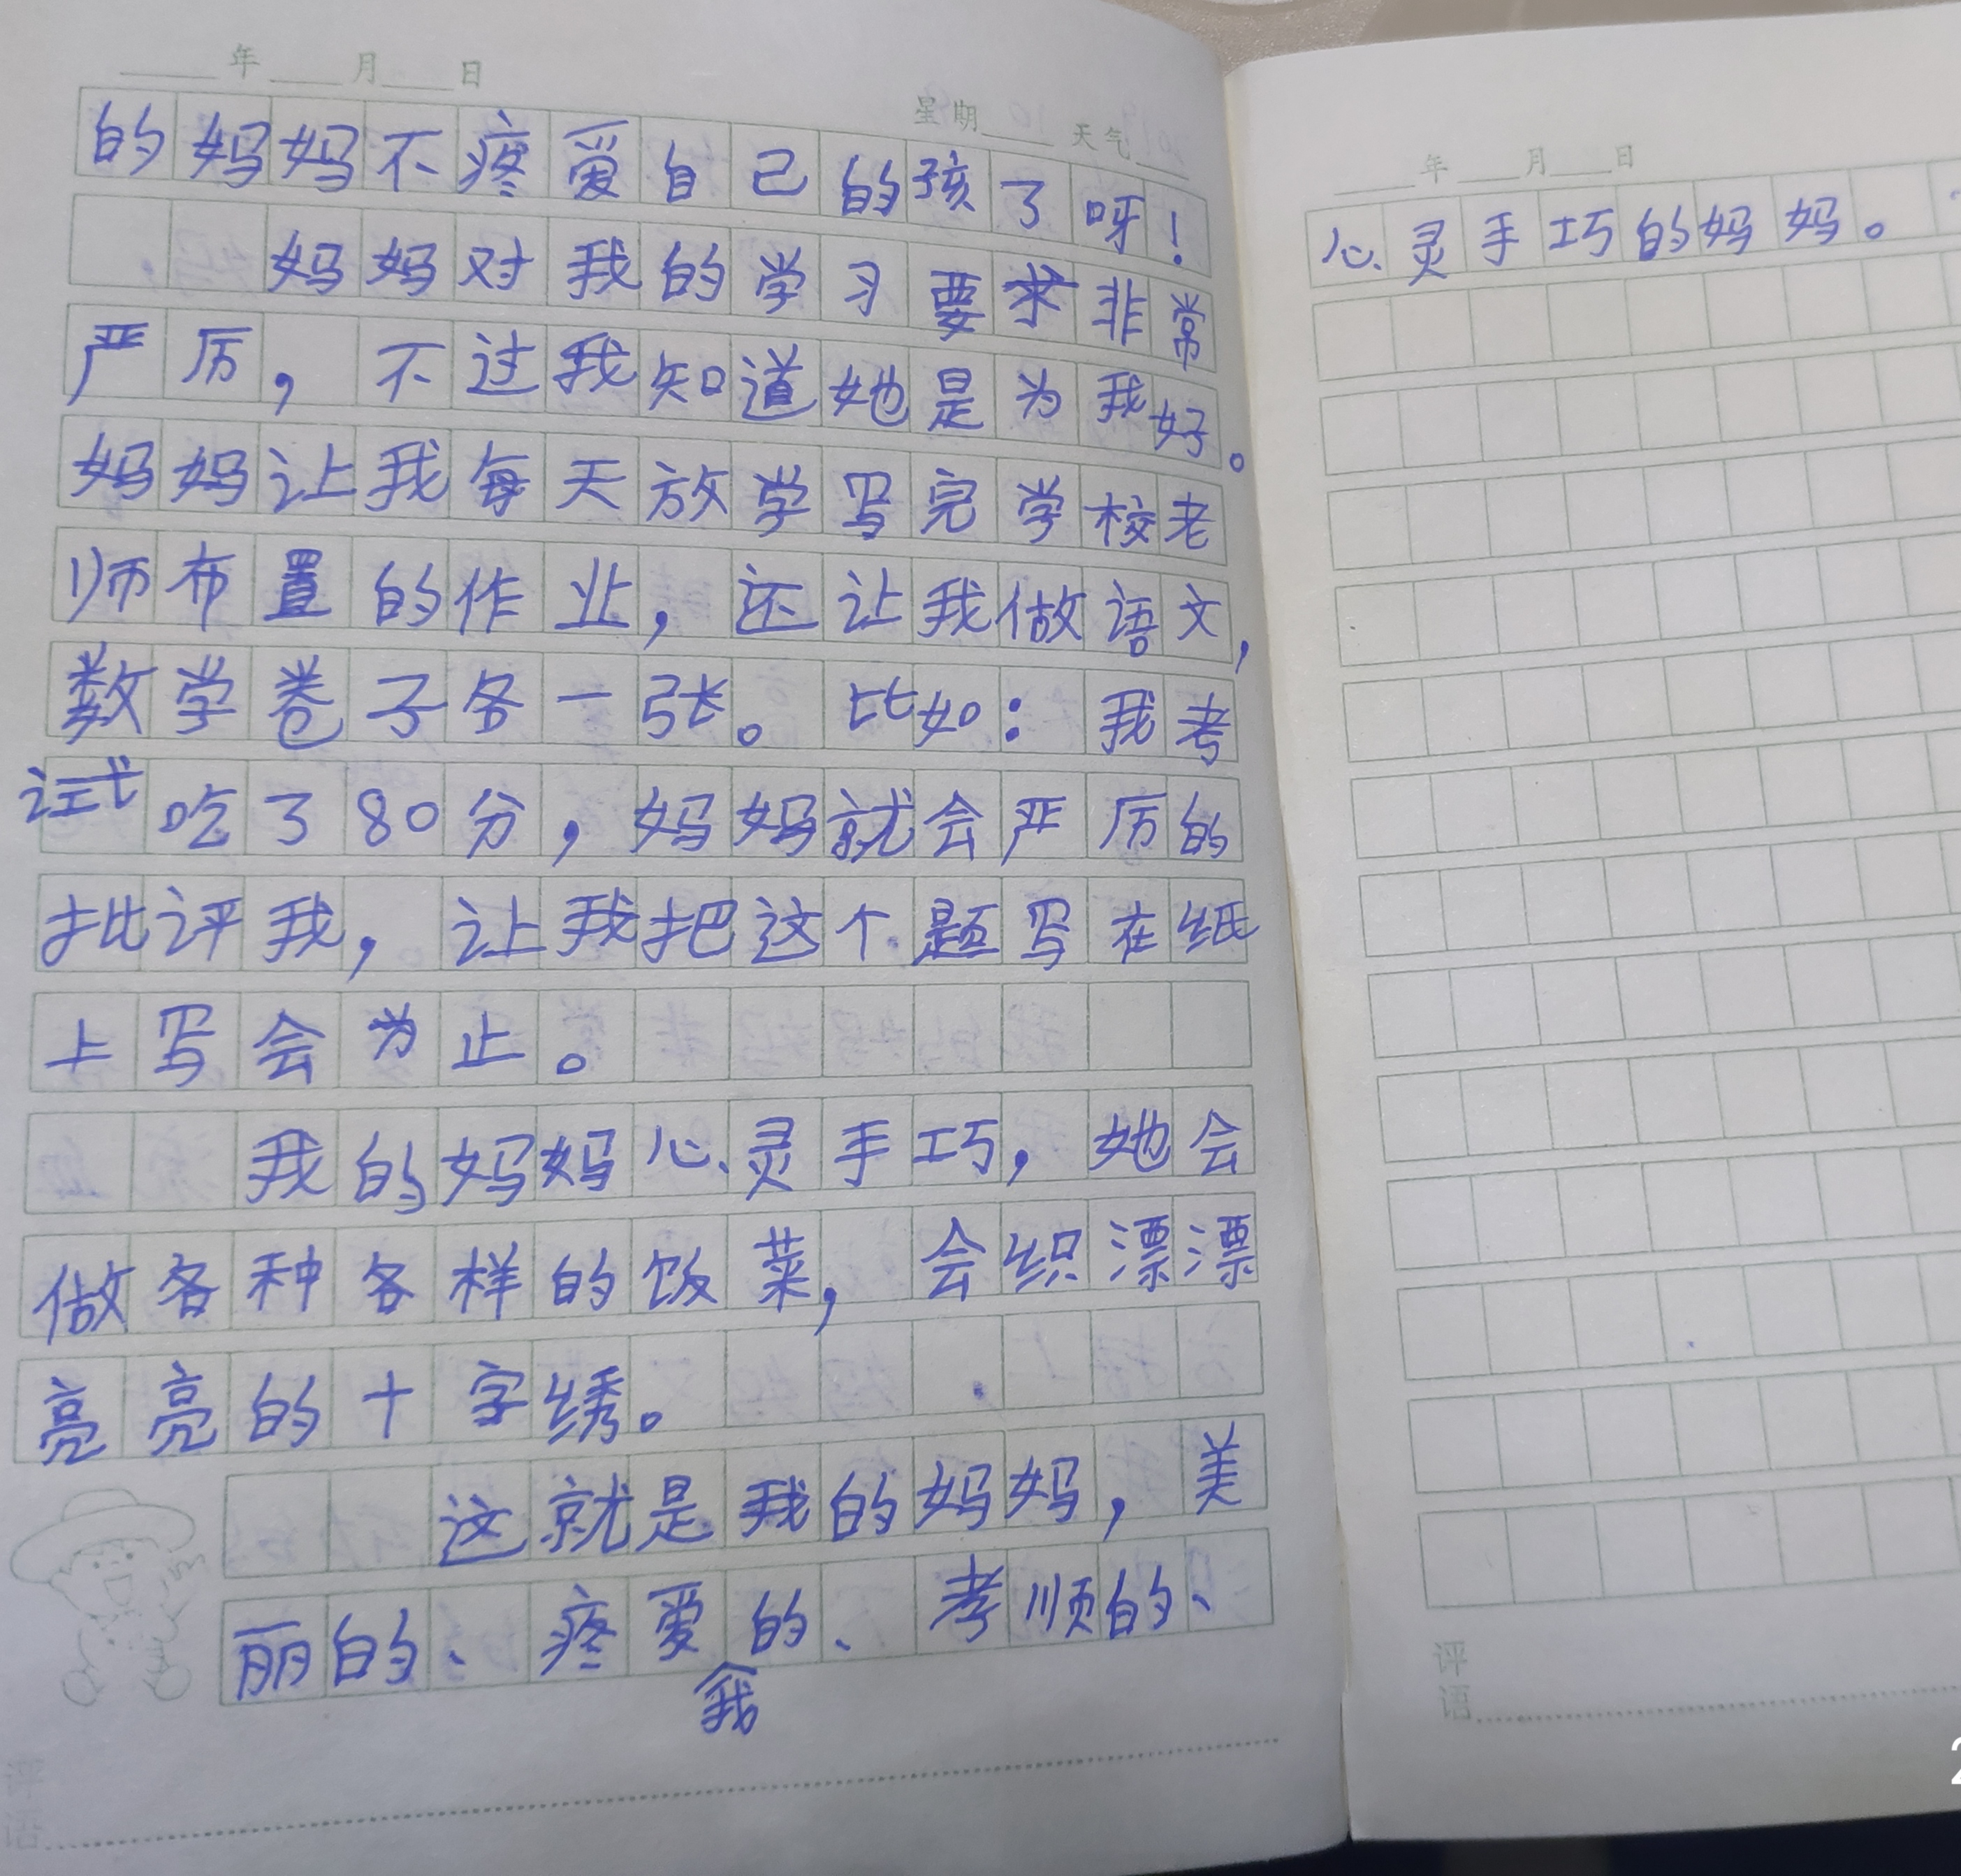 年 月 日
星期 天气
的妈妈不疼爱自己的孩了呀！
妈妈对我的学习要求非常
严厉，不过我知道她是为我好。
妈妈让我每天放学写完学校老
师布置的作业，还让我做语文，
数学卷子各一张。比如：我考
试吃了80分，妈妈就会严厉的
批评我，让我把这个题写在纸
上写会为止。
我的妈妈心灵手巧，她会
做各种各样的饭菜，会织漂漂
亮亮的十字绣。
这就是我的妈妈，美
丽的、疼爱我的、孝顺的、
评语
年 月 日
心灵手巧的妈妈。
评语